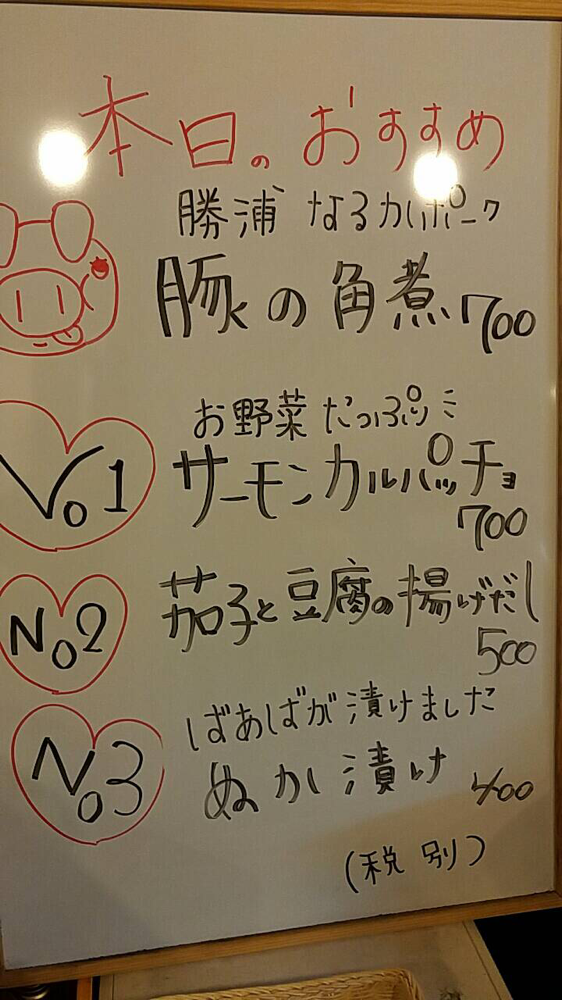 本日のおすすめ
勝浦 なるかポーク
豚の角煮 700
お野菜たっぷり
No1 サーモンカルパッチョ
700
No2 茄子と豆腐の揚げだし
500
ばあばが漬けました
No3 ぬか漬け 400
(税別)